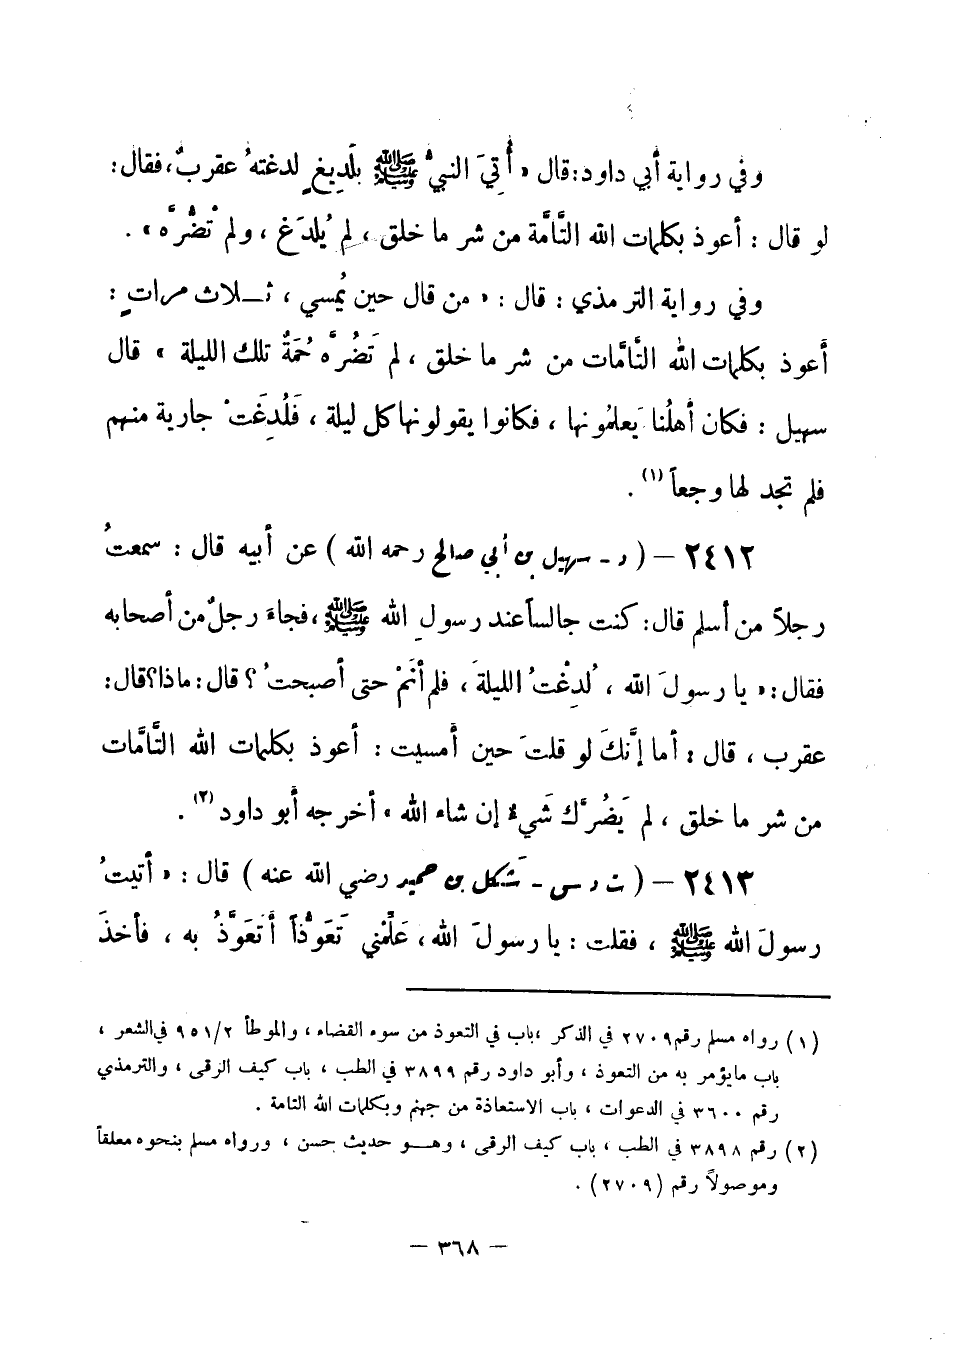 وفي رواية أبي داود: قال « أُتِيَ النبيُّ ﷺ بلَدِيغٍ لدغتهُ عقربٌ، فقال:
لو قال : أعوذ بكلمات الله التَّامَّة من شر ما خلق ، لم يُلدَغ ، ولم تضُرَّه » .
وفي رواية الترمذي : قال : « من قال حين يُمسي ، ثـلاث مراتٍ :
أعوذ بكلمات الله التَّامَّات من شر ما خلق ، لم تَضُرَّه حُمَةٌ تلك الليلة » قال
سهيل : فكان أهلُنا يَعلمُونها ، فكانوا يقولونها كل ليلة ، فَلُدِغَتْ جارية منهم
فلم تجد لها وجعاً (١) .
٢٤١٢ – ( د - سهيل بن أبي صالح رحمه الله ) عن أبيه قال : سمعتُ
رجلاً من أسلم قال: كنت جالساً عند رسولِ الله ﷺ ، فجاءَ رجلٌ من أصحابه
فقال: « يا رسولَ الله ، لُدِغْتُ الليلةَ ، فلم أنَمْ حتى أصبحتُ ؟ قال: ماذا؟ قال:
عقرب ، قال : أما إنَّكَ لو قلتَ حين أمسيت : أعوذ بكلمات الله التَّامَّات
من شر ما خلق ، لم يَضُرَّك شَيءٌ إن شاء الله » أخرجه أبو داود (٢) .
٢٤١٣ – ( ت د س - شَكل بن حميد رضي الله عنه ) قال : « أتيتُ
رسولَ الله ﷺ ، فقلت : يا رسولَ الله ، عَلِّمْني تَعَوُّذاً أتَعَوَّذُ به ، فأخذَ
(١) رواه مسلم رقم ٢٧٠٩ في الذكر ، باب في التعوذ من سوء القضاء ، والموطأ ٩٥١/٢ في الشعر ،
باب ما يؤمر به من التعوذ ، وأبو داود رقم ٣٨٩٩ في الطب ، باب كيف الرقى ، والترمذي
رقم ٣٦٠٠ في الدعوات ، باب الاستعاذة من جهنم وبكلمات الله التامة .
(٢) رقم ٣٨٩٨ في الطب ، باب كيف الرقى ، وهـو حديث حسن ، ورواه مسلم بنحوه معلقاً
وموصولاً رقم (٢٧٠٩) .
– ٣٦٨ –